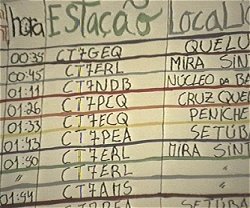 hora ESTAÇÃO LOCAL
00:35 CT7GEQ QUELU
00:45 CT7ERL MIRA SIN
01:11 CT7NDB NÚCLEO DA B
01:26 CT7PCQ CRUZ QUE
01:33 CT7ECQ PENICHE
01:43 CT7PEA SETÚB
01:50 CT7EAL MIRA SIN
" CT7ERL "
01:54 CT7AMS
SETÚBA